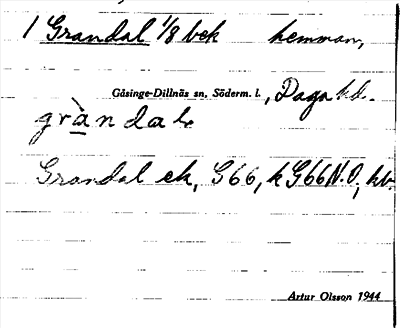 1 Grandal 1/8 bek hemman,
Gåsinge-Dillnäs sn, Söderm. l., Daga hd.
gràndal
Grandal ek, G66, k G66 N.O, kv.
Artur Olsson 1944